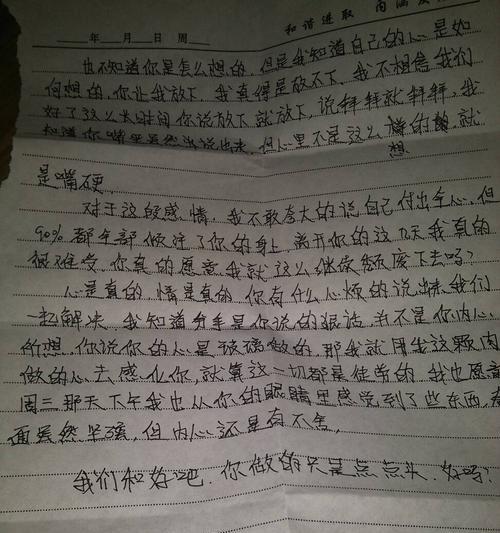 和谐进取 内涵发
年 月 日 周
也不知道你是怎么想的,但是我知道自己的心是如
何想的,你让我放下,我真得是放不下,我不相信我们
好了这么长时间你说放下就放下,说拜拜就拜拜,我
知道你嘴里虽然当说出来,但心里不是这么想的,就
是嘴硬.
对于这段感情,我不敢夸大的说自己付出全心,但
90%都全部倾注了你的身上,离开你的这几天我真的
很难受,你真的愿意我就这么继续颓废下去吗?
心是真的,情是真的,你有什么心烦的说出来,我们
一起解决,我知道分手是你说的狠话,并不是你内心
所想,你说你的心是玻璃做的,那我就用我这颗肉
做的心去感化你,就算这一切都是徒劳的,我也愿意
周三那天下午我也从你的眼睛里感觉到了些东西,表
面虽然坚强,但内心还是有不舍,
我们和好吧,你做的只是点点头,好吗?